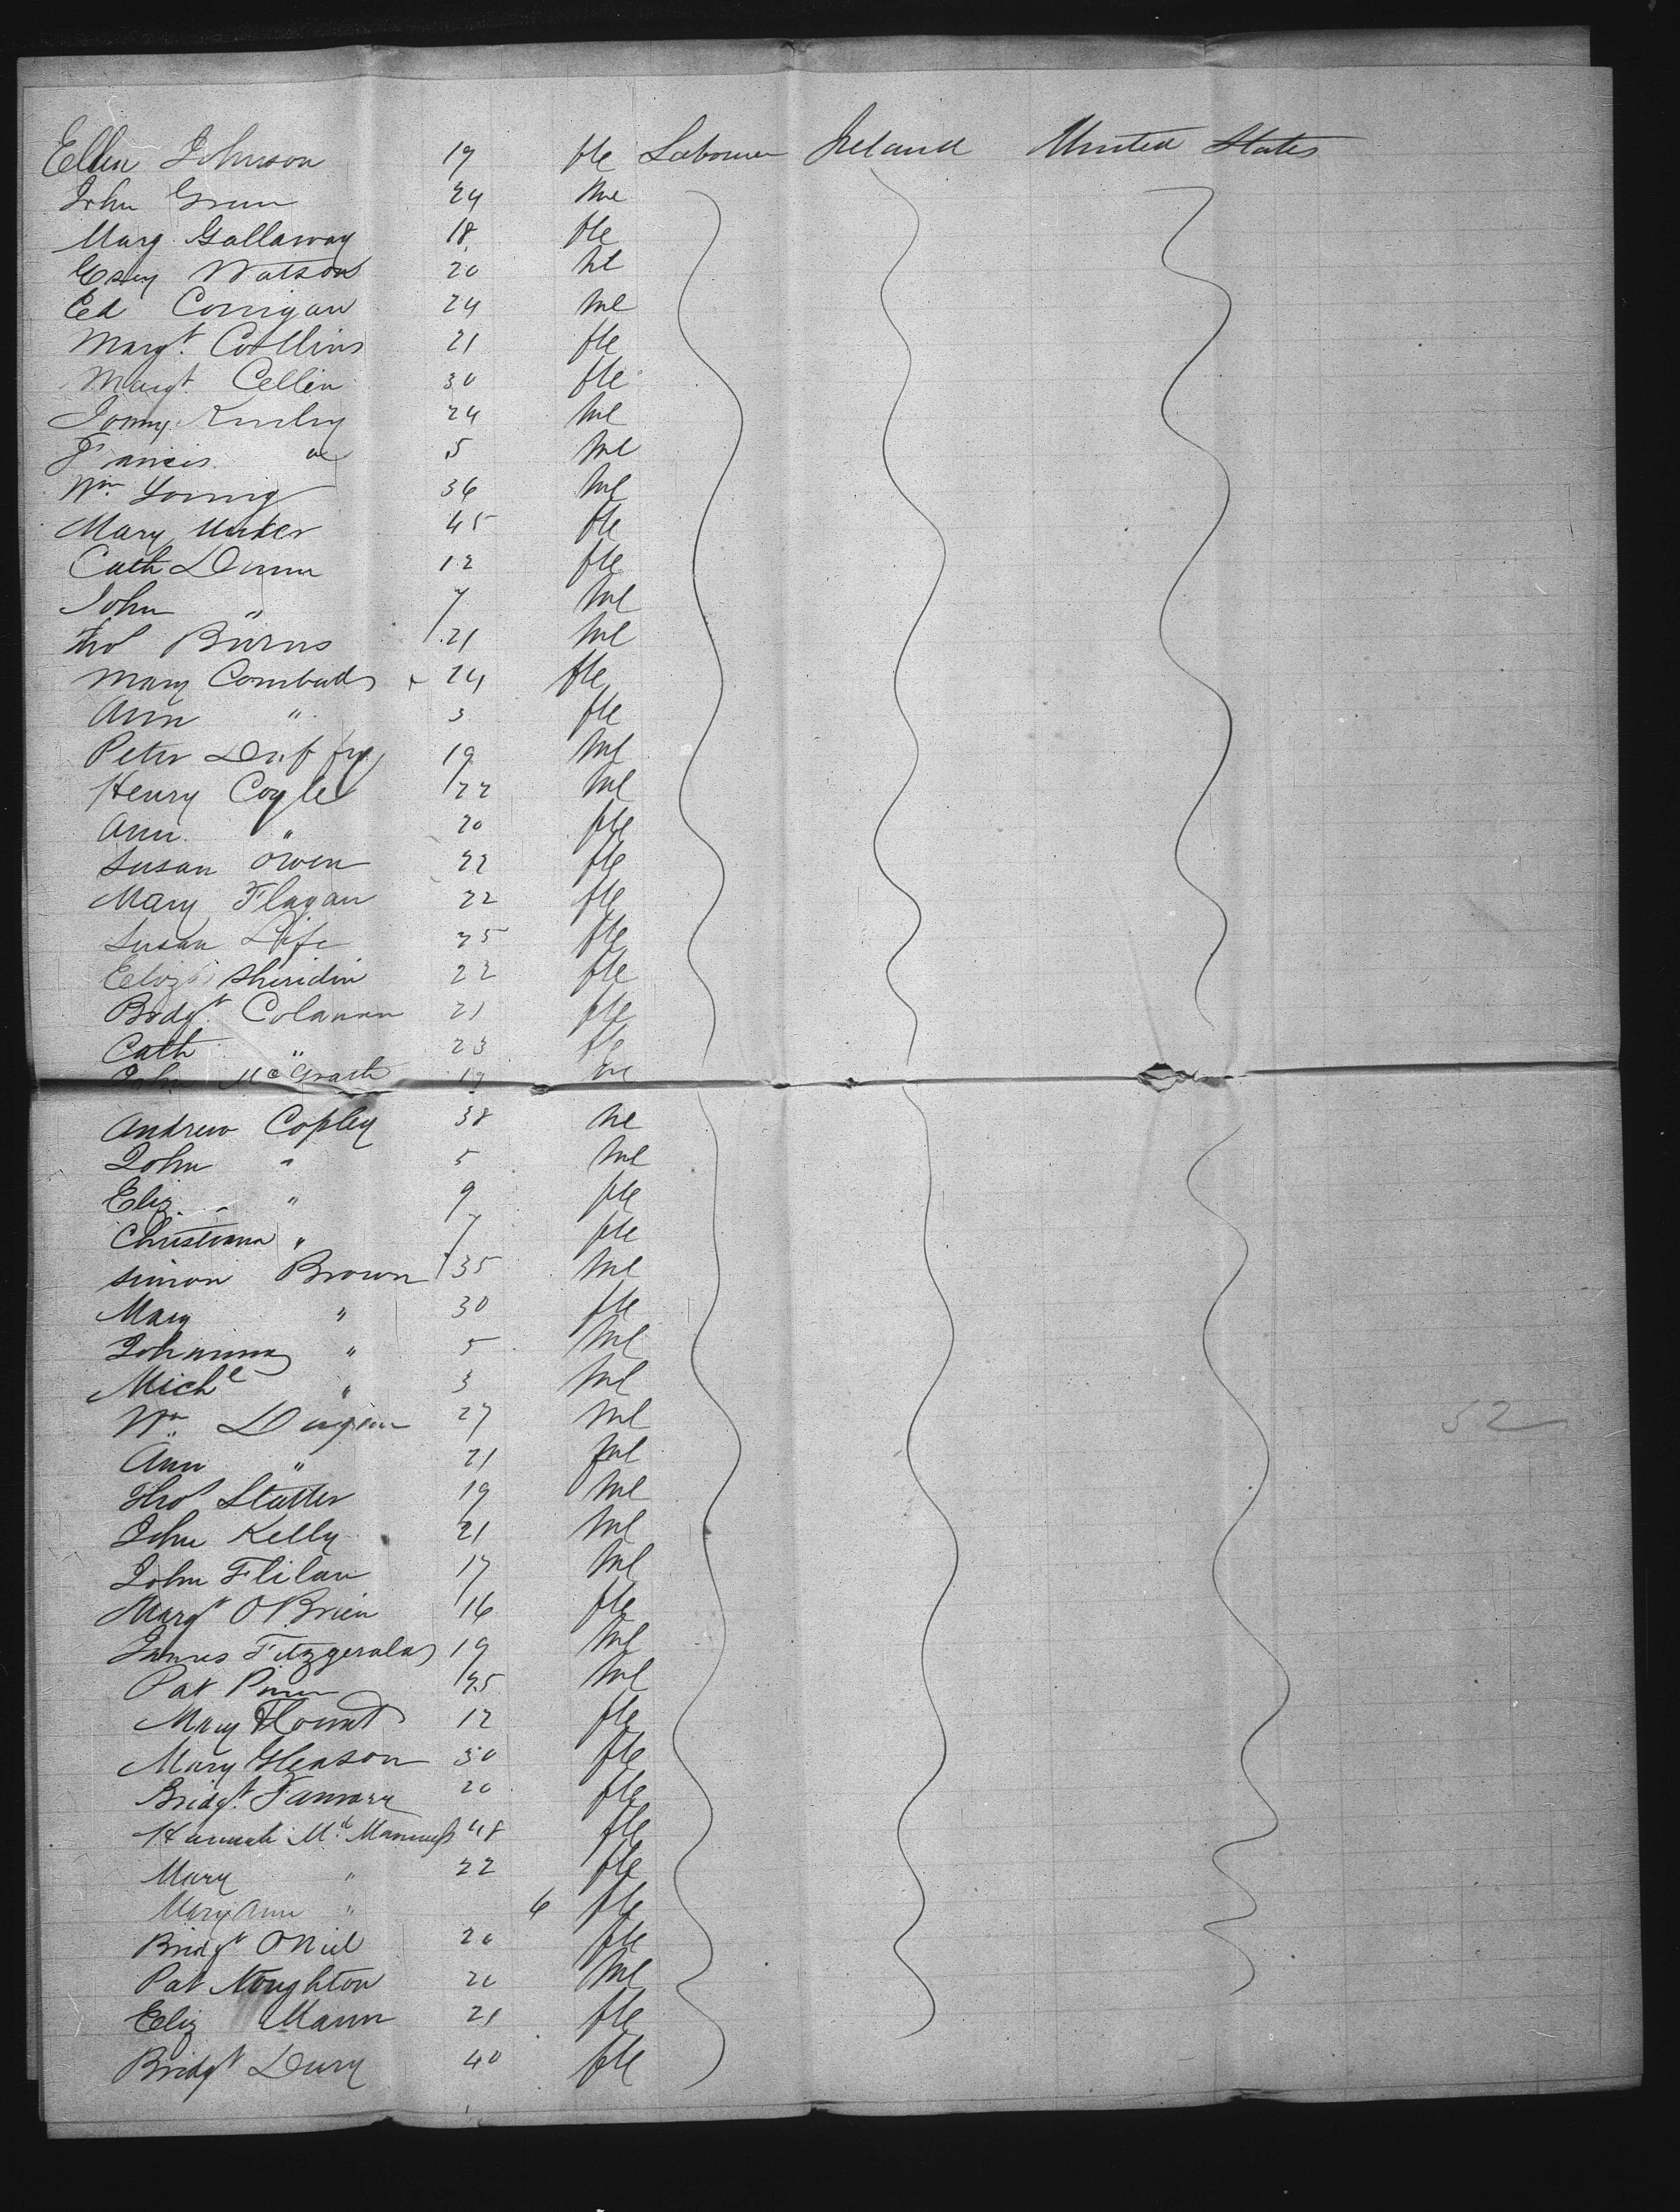 Ellen Johnson 19 fle Labourer Ireland United States
John Grun 24 Mle
Marg Gallaway 18 fle
Watson 20 Mle
Ed Corrigan 24 Mle
Margt. Collins 21 fle
Margt. Cellin 30 fle
24 Mle
Francis " 5 Mle
Wm. Young 36 Mle
Mary 45 fle
Cath Dunn 12 fle
John " 7 Mle
Thos Burns 21 Mle
Mary 24 fle
Ann " 3 fle
Peter 19 Mle
Henry Coyle 22 Mle
Ann " 20 fle
Susan Owen 22 fle
Mary Flagan 22 fle
Susan 25 fle
Eliza Sheridin 22 fle
Bridgt. Colanan 21 fle
Cath " 23 fle
John McGrath 17 Mle
Andrew Copley 38 Mle
John " 5 Mle
Eliz. " 9 fle
Christiana " 7 fle
Simon Brown 35 Mle
Mary " 30 fle
" 5 Mle
Michl " 3 Mle
Wm. Dugan 27 Mle
Ann " 21 fle
Thos Slatter 19 Mle
John Kelly 21 Mle
John Flilan 17 Mle
Margt O'Brien 16 fle
James Fitzgerald 19 Mle
Pat 25 Mle
Mary 12 fle
Mary Gleason 30 fle
Bridgt. 20 fle
Hannah McManus 48 fle
Mary " 22 fle
Mary Ann " 6 fle
Bridgt ONiel 20 fle
Pat Noughton 20 Mle
Eliz Mann 21 fle
Bridgt Dury 40 fle
52